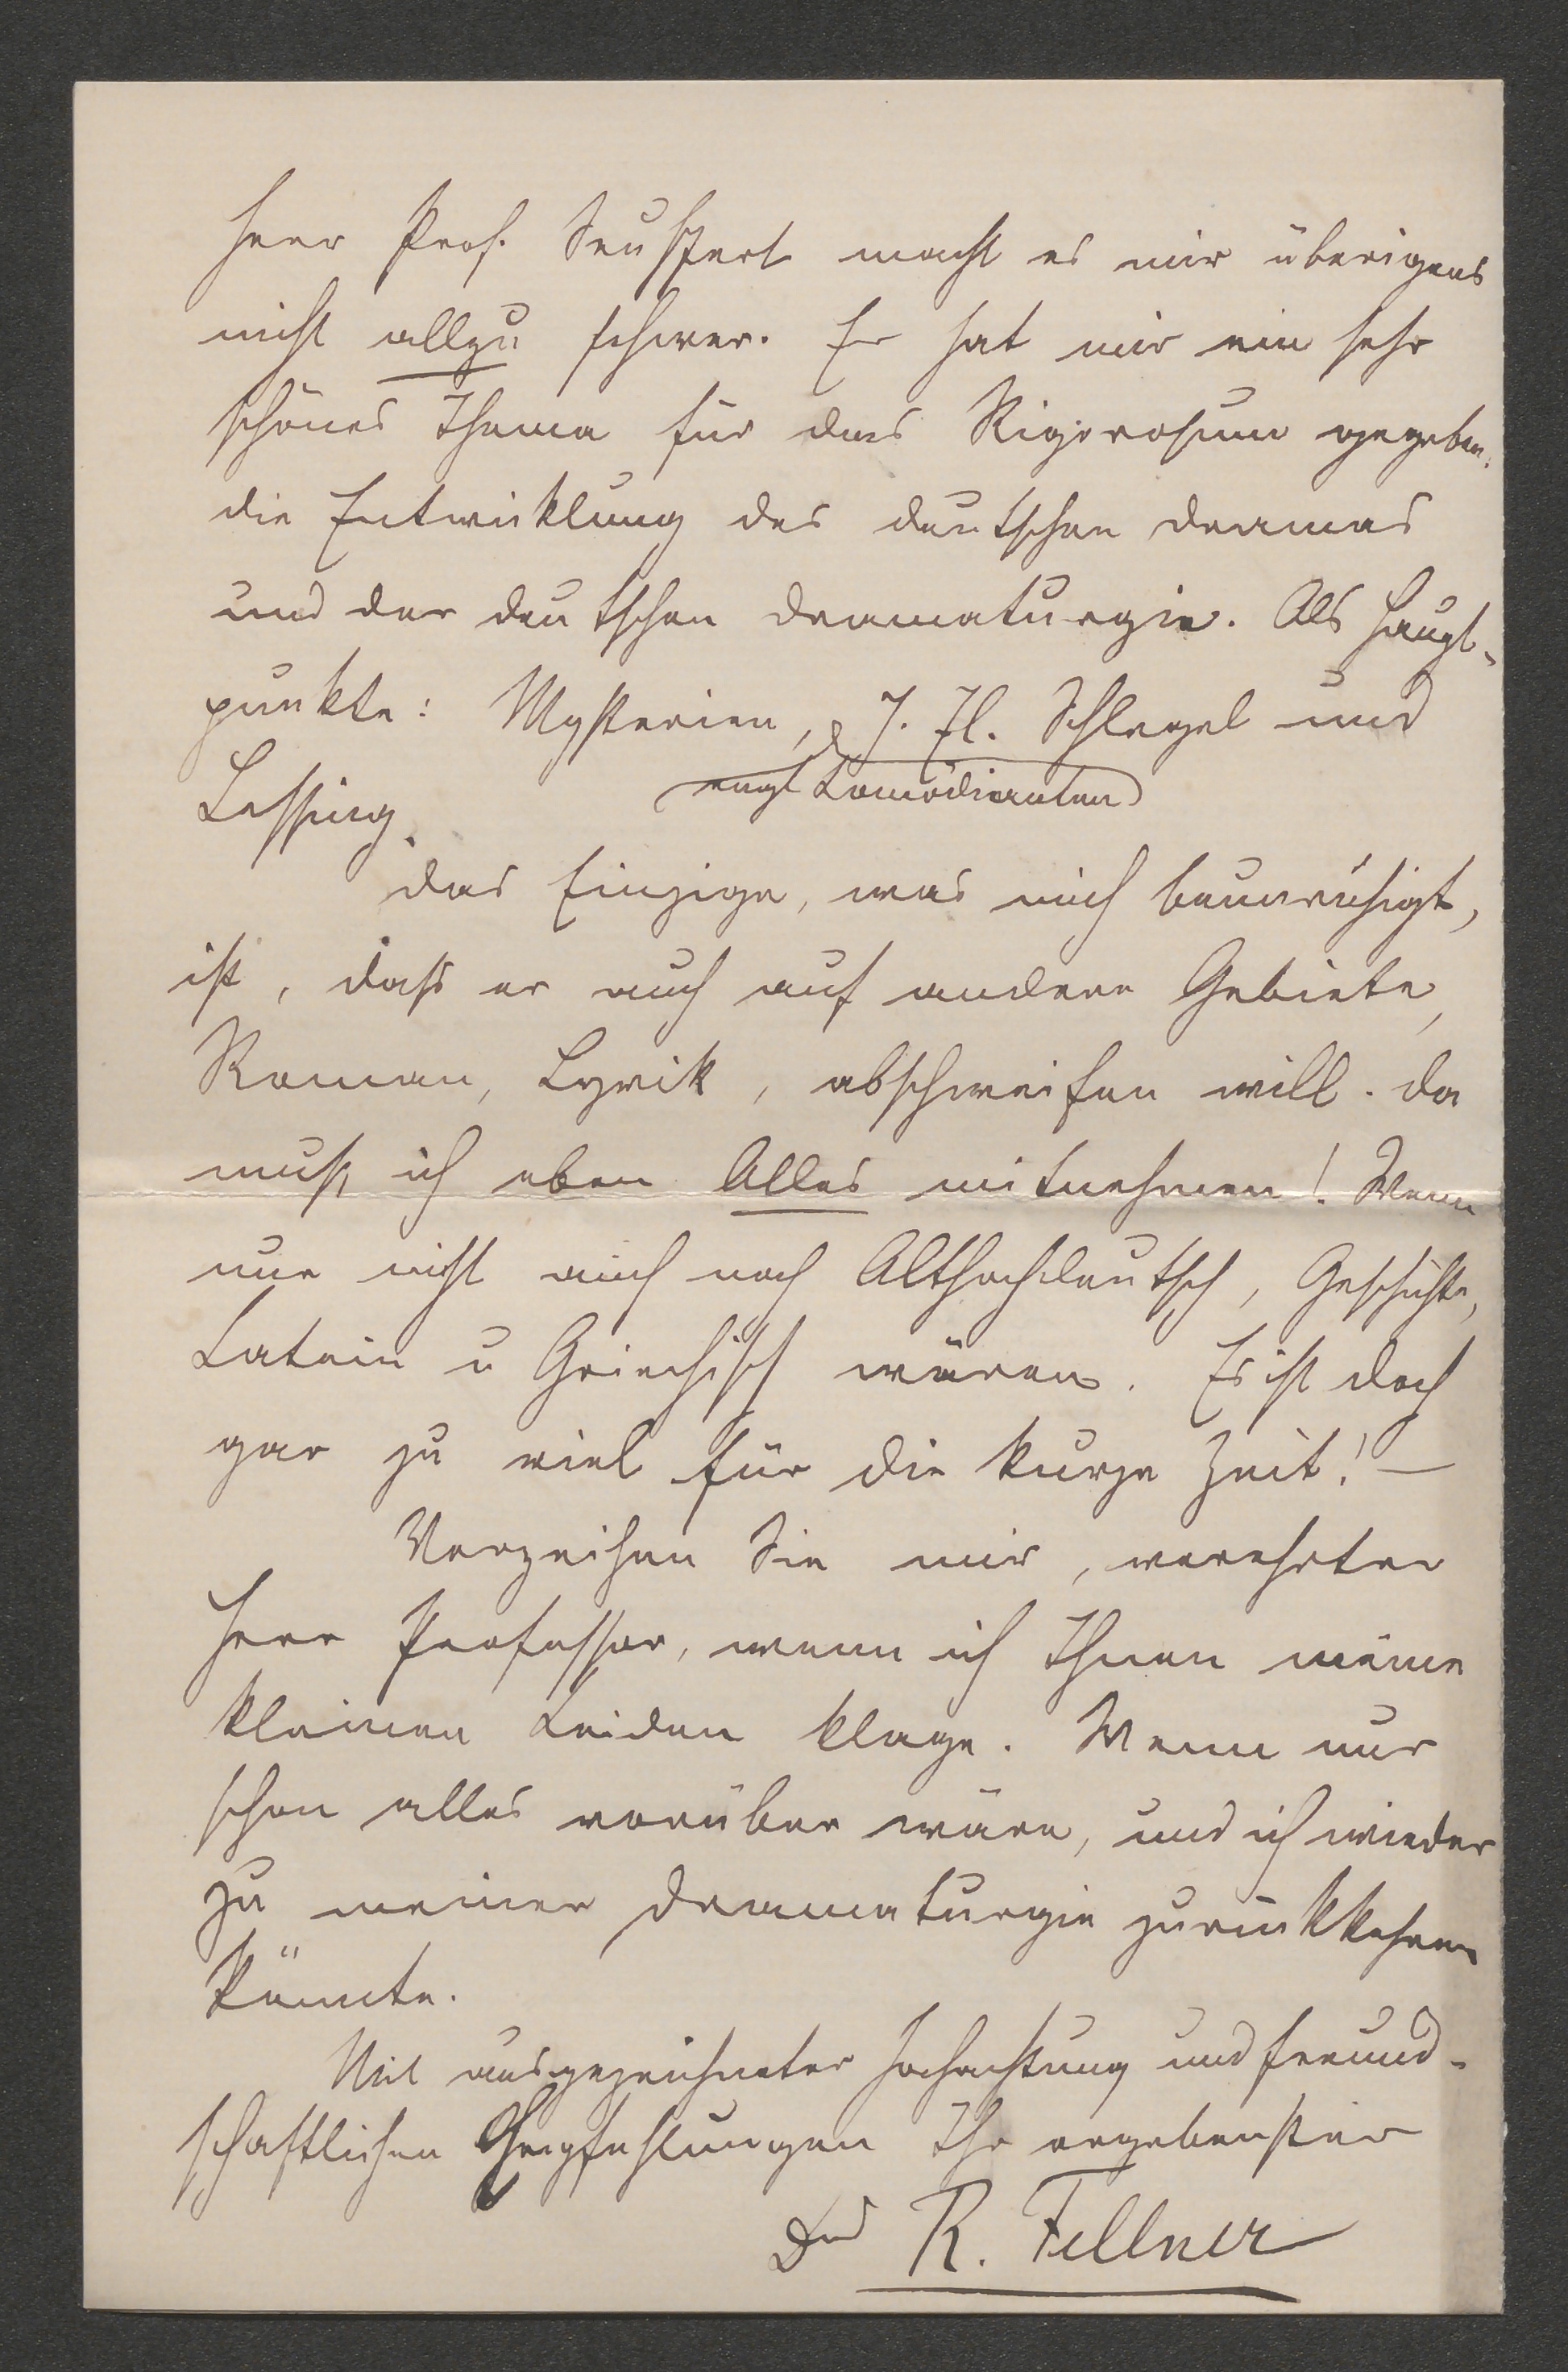 Herr Prof. Seuffert macht es mir überigens
nicht allzu schwer. Er hat mir ein sehr
schönes Thema für das Rigorosum gegeben:
die Entwicklung des deutschen Dramas
und der deutschen Dramaturgie. Als Haupt-
punkte: Mysterien, J. El. Schlegel und
engl Komödianten
Lessing.
Das Einzige, was mich beunruhigt,
ist, dass er auch auf andere Gebiete,
Roman, Lyrik, abschweifen will. Da
muß ich eben Alles mitnehmen! Wenn
nur nicht auch noch Althochdeutsch, Geschichte,
Latein u Griechisch wären. Es ist doch
gar zu viel für die kurze Zeit! —
Verzeihen Sie mir, verehrter
Herr Professor, wenn ich Ihnen meine
kleinen Leiden klage. Wenn nur
schon alles vorüber wäre, und ich wieder
zu meiner Dramaturgie zurückkehren
könnte.
Mit ausgezeichneter Hochachtung und freund-
schaftlichen Empfehlungen Ihr ergebenster
R. Fellner